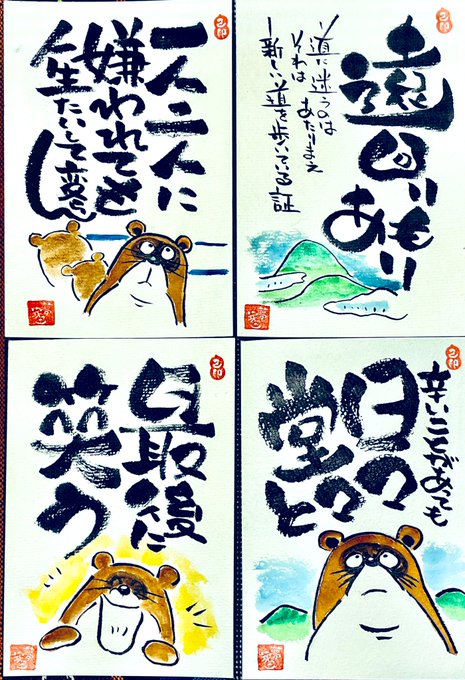 一人二人に
嫌われても
人生たいして変らん
遠回りも
あり
道に迷うのは
あたりまえ
それは
新しい道を歩いている証
最後に
笑う
辛いことがあっても
日々
堂々と